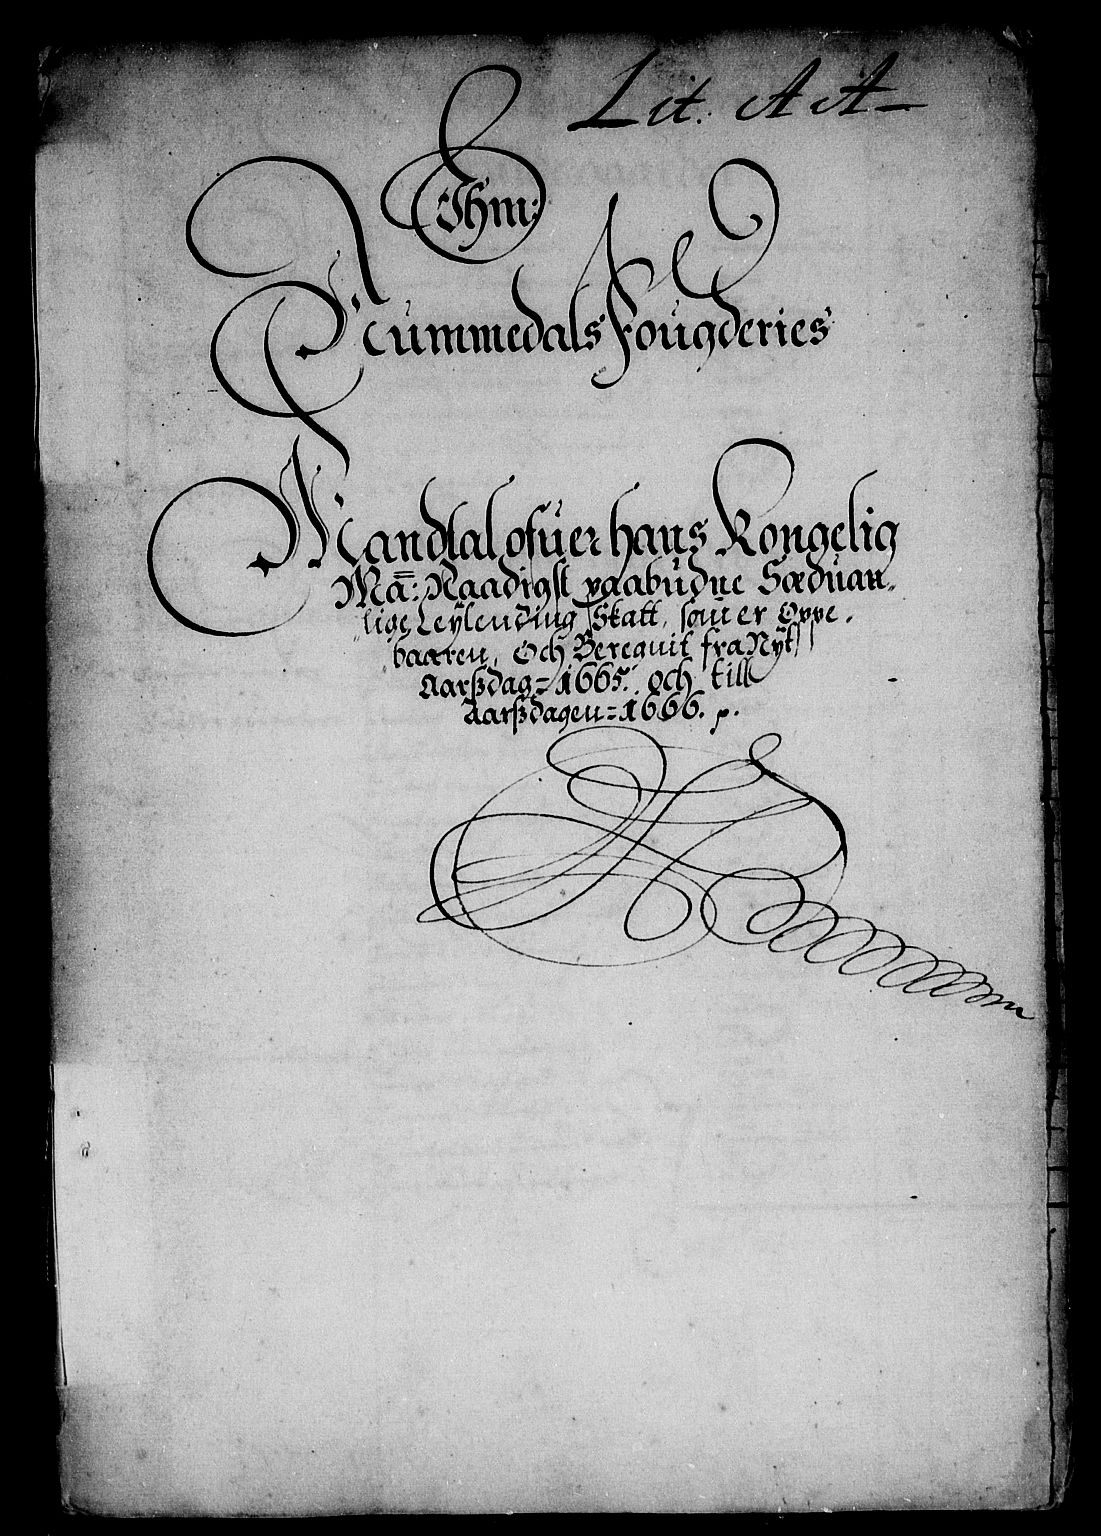 Lit. AA
Thm:
Nummedals Fougderies
Mandtal ofuer hans Kongelig
Ma: Naadigst paabudne Sæduan-
lige Leylending Skatt, som er Oppe.
baaren, Och Beregnit fra Nyt
Aarßdag = 1665. och till
Aarßdagen = 1666. p.